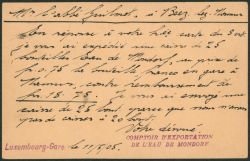 Mr l'abbé Guilmot, à Baez lez Namur
En réponse à votre hon. carte du 9 ct
je vous ai expédié une caisse de 25
bouteilles Eau de Mondorf, au prix de
frs 0.75 la bouteille franco en gare à
Namur, contre remboursement de
frs 18.75. Je vous ai envoyé une
caisse de 25 bout. parce que nous n'avons
pas de caisses à 20 bout.
Votre dévoué
COMPTOIR D'EXPORTATION
DE L'EAU DE MONDORF
Luxembourg-Gare, le 11/5/05.